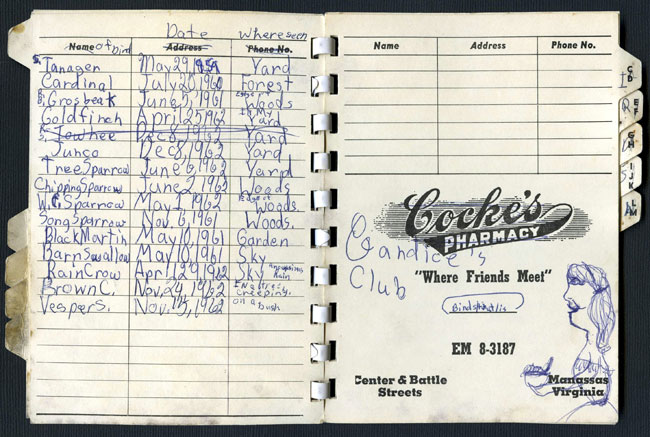 Date Where seen
Name of bird Address Phone No.
S. Tanager May 29, 1959 Yard
Cardinal July 20, 1960 Forest
B. Grosbeak June 5, 1961 Edge of Woods
Goldfinch April 25, 1962 In My Yard
R.S. Towhee Dec 8, 1962 Yard
Junco Dec 8, 1962 Yard
Tree Sparrow June 6, 1962 Yard
Chipping Sparrow June 2, 1962 Woods
W.C. Sparrow May 1, 1962 Edge of Woods.
Song Sparrow Nov. 6, 1961 Woods.
Black Martin May 10, 1961 Garden
Barn Swallow May 10, 1961 Sky
Rain Crow April 29, 1962 Sky Rain
Brown C. Nov. 24, 1962 In a tree Creeping.
Vesper S. Nov. 1962 on a bush
Name Address Phone No.
CD
EF
GH
IJK
LM
Cocke's
PHARMACY
Candice's
Club
"Where Friends Meet"
EM 8-3187
Center & Battle Manassas
Streets Virginia